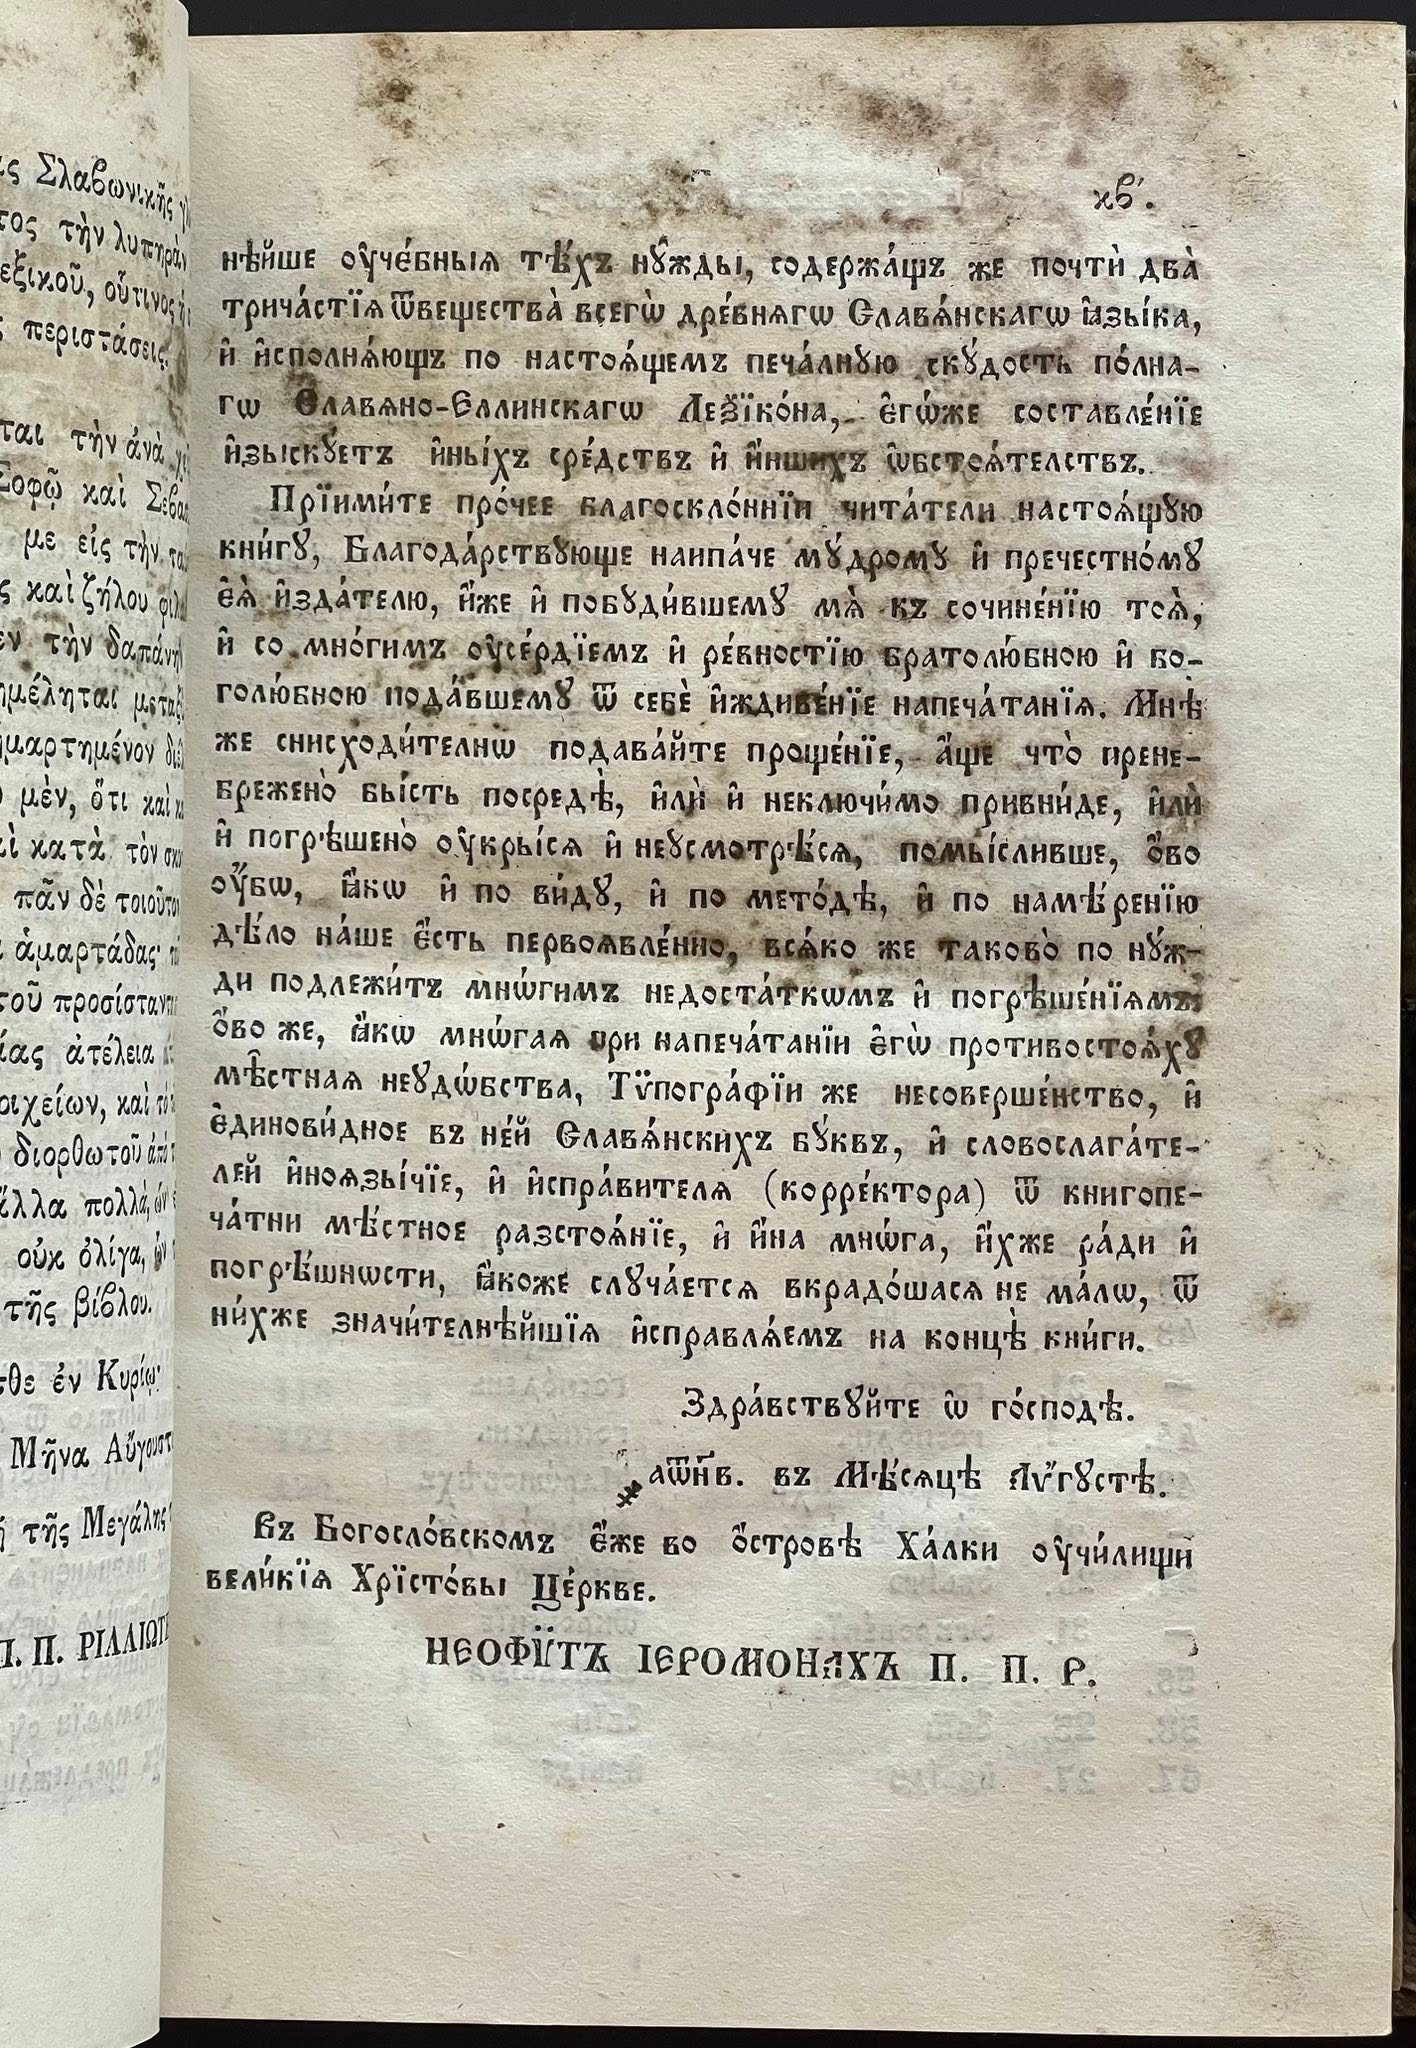 ας Σλαβωνικῆς
τος τὴν λυπηρὰν
εξικοῦ, οὗτινος ἡ
ς περιστάσεις.
ται τὴν ἀνὰ
Σοφῷ καὶ
με εἰς τὴν
ς καὶ ζήλου
εν τὴν δαπάνην
ημέληται
μαρτημένον
μὲν, ὅτι καὶ
αὶ κατὰ τὸν
πᾶν δὲ τοιοῦτον
ἁμαρτάδας·
τοῦ
ίας ἀτέλεια
οιχείων, καὶ
διορθωτοῦ ἀπὸ
ἄλλα πολλὰ, ὧν
οὐκ ὀλίγα, ὧν
τῆς βίβλου.
σθε ἐν Κυρίῳ·
Μῆνα
τῆς Μεγάλης
Π. Π. ΡΙΛΛΙΩΤ
κβ′.
нѣйше ᲂу҆че́бныя тѣ́хъ нꙋ́жды, содержа́щъ же почтѝ два̀
трича́стїѧ ѿвещества̀ всегѡ̀ дре́внѧгѡ Славѧ́нскагѡ ꙗ҆зы́ка,
и҆ и҆сполнѧ́ющъ по настоѧ́щемъ печа́лную скꙋ́дость по́лна-
гѡ Славѧно-Еллинскагѡ Леѯїко́на, є҆гѡ́же составле́нїе
и҆зыскꙋ́етъ и҆ны́хъ сре́дствъ и҆ и҆́нших̾ ѡ҆бстоѧ́телствъ.
Прїими́те про́чее благоскло́ннїи чита́тели настоѧ́щꙋю
кни́гꙋ, Благода́рствꙋюще наипа́че мꙋ́дромꙋ и҆ пречестно́мꙋ
є҆ѧ̀ и҆зда́телю, и҆́же и҆ побꙋди́вшемꙋ мѧ̀ къ сочине́нїю тоѧ̀,
и҆ со мно́гимъ ᲂу҆се́рдїемъ и҆ ре́вностїю братолю́бною и҆ бо-
голю́бною пода́вшемꙋ ѿ себѐ и҆ждиве́нїе напеча́танїѧ. Мнѣ
же снисходи́телнѡ подава́йте проще́нїе, а҆́ще что̀ прене-
брежено̀ бы́сть посредѣ̀, и҆лѝ и҆ неключи́мо привни́де, и҆лѝ
и҆ погрѣшено̀ ᲂу҆кры́сѧ и҆ неꙋсмотрѣ́сѧ, помы́сливше, ѻ҆́во
ᲂу҆́бѡ, ꙗ҆́кѡ и҆ по ви́дꙋ, и҆ по мето́дѣ, и҆ по намѣ́ренїю
дѣ́ло на́ше є҆́сть первоѧвле́нно, всѧ́ко же таково̀ по нꙋ́ж-
ди подлежи́тъ мнѡ́гимъ недоста́ткѡмъ и҆ погрѣше́нїѧмъ
ѻ҆́во же, ꙗ҆́кѡ мнѡ́гаѧ при напеча́танїи є҆гѡ̀ противостоѧ́хꙋ
мѣ́стнаѧ неꙋдѡ́бства, Тѷпогра́фїи же несоверше́нство, и҆
є҆динови́дное въ не́й Славѧ́нскихъ бꙋ́квъ, и҆ словослага́те-
лей и҆ноѧзы́чїе, и҆ и҆спра́вителѧ (корре́ктора) ѿ книгопе-
ча́тни мѣ́стное разстоѧ́нїе, и҆ и҆́на мнѡ́га, и҆́хже ра́ди и҆
погрѣ́шнѡсти, ꙗ҆́коже слꙋча́етсѧ вкрадо́шасѧ не ма́лѡ, ѿ
ни́хже значи́телнѣйшїѧ и҆справлѧ́емъ на концѣ̀ кни́ги.
Здра́вствꙋйте ѡ҆ го́сподѣ.
аѿн҃в. въ Мѣ́сѧцѣ Аѵ́гꙋстѣ.
Въ Богосло́вскомъ є҆́же во ѻ҆́стровѣ Ха́лки ᲂу҆чи́лищи
вели́кїѧ Хрїсто́вы Це́ркве.
НЕОФѶТЪ ІЕРОМОНАХЪ П. П. Р.